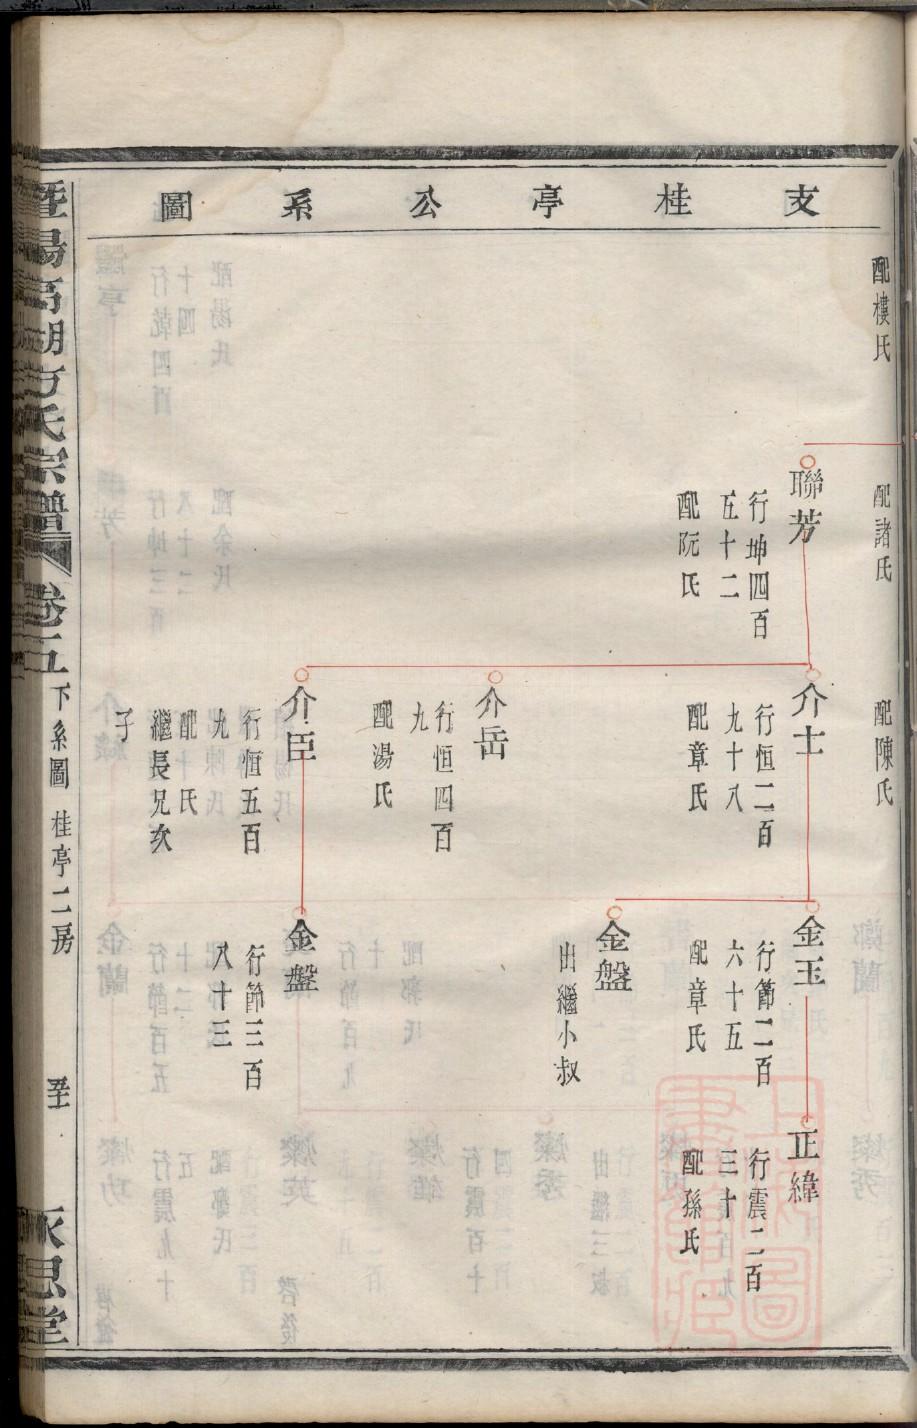 支桂亭公系圖
配樓氏
配諸氏
配陳氏
聯芳
行坤四百
五十二
配阮氏
介士
行恒二百
九十八
配章氏
介岳
行恒四百
九
配湯氏
介臣
行恒五百
九
配氏
繼長兄次
子
金玉
行節二百
六十五
配章氏
金盤
出繼小叔
金盤
行節三百
八十三
正緯
行震二百
三十
配孫氏
暨陽高湖方氏宗譜
卷五
下系圖
桂亭二房
永思堂